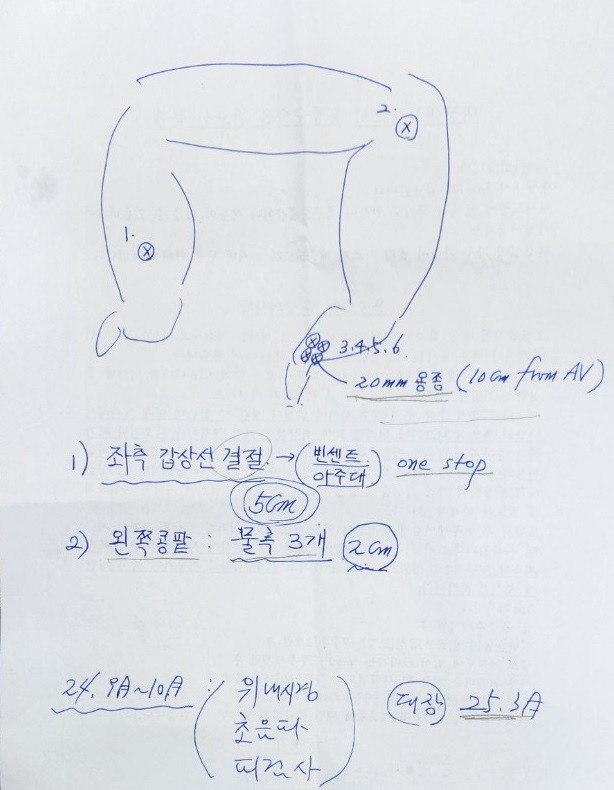 2.
1.
3.4.5.6.
20mm 용종 (10cm from AV)
1) 좌측 갑상선 결절 → (빈센트. 아주대.) one stop
5cm
2) 왼쪽콩팥 : 물혹 3개 2cm
24. 9月~10月 : (위내시경 대장 25.3月
초음파
피검사)